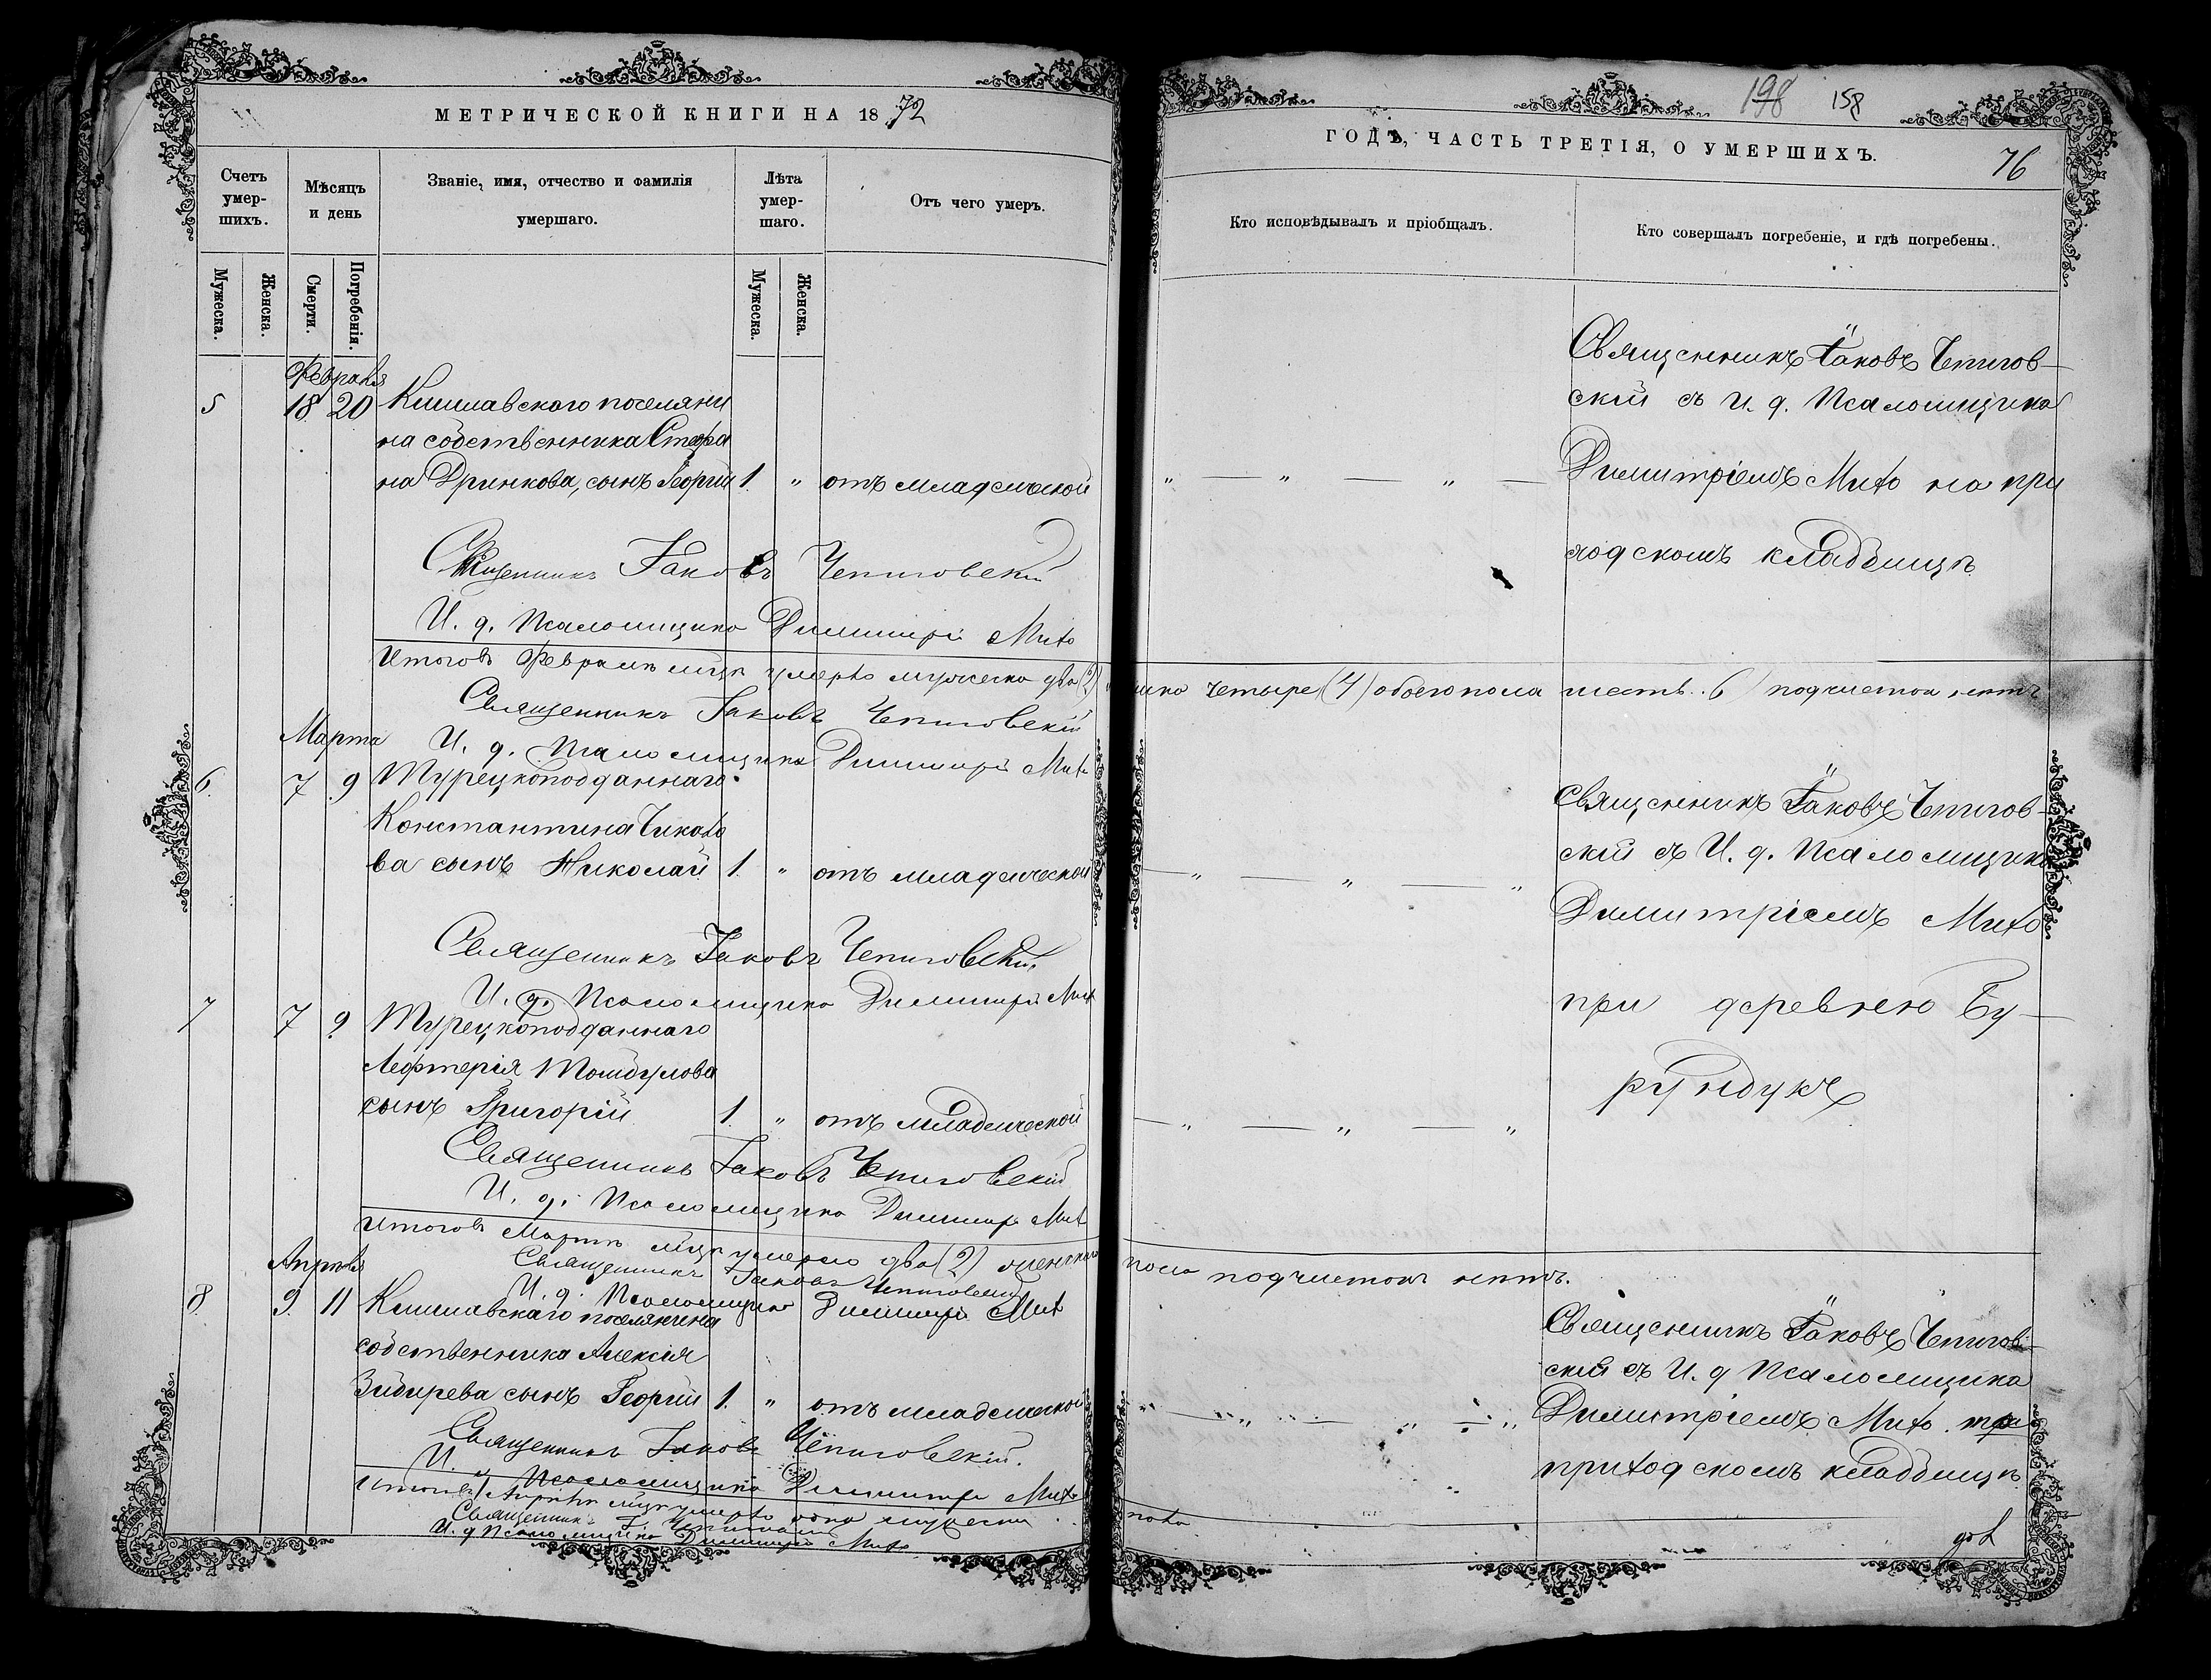 МЕТРИЧЕСКОЙ КНИГИ НА 1872
Счетъ умер-шихъ.
Мѣсяцъ и день
Званіе, имя, отчество и фамилія умершаго.
Лѣта умер-шаго.
Отъ чего умеръ.
Мужеска.
Женска.
Смерти.
Погребенія.
Мужеска.
Женска.
Февраля
5 18 20 Кишлавского поселяни
на собственника Стефа
на Дринкова, сынъ Георгій 1. " отъ младенческой
Священникъ Іаковъ Чепиговскій
И. д. Псаломщика Димитрій Мито
Итого въ Февралѣ м-цѣ умерло мужеска два (2)
Священникъ Іаковъ Чепиговскій
Марта
И. д. Псаломщика Димитрій Мито
6. 7 9 Турецкоподданнаго
Константина Чикато
ва сынъ Николай 1. " отъ младенческой
Священникъ Іаковъ Чепиговскій.
И. д. Псаломщика Димитрій Мито
7 7 9 Турецкоподданнаго
Лефтерія
сынъ Григорій 1. " отъ младенческой
Священникъ Іаковъ Чепиговскій
И. д. Псаломщика Димитрій Мито
Итого въ Мартѣ м-цѣ умерло два (2)
Священникъ Іаковъ Чепиговскій
Апрѣля
И. д. Псаломщика Димитрій Мито
8. 9. 11 Кишлавскаго поселянина
собственника Алексія
Зибирева сынъ Георгій 1. " отъ младенческой
Священникъ Іаковъ Чепиговскій.
И. д. Псаломщика Димитрій Мито
Итого въ Апрѣлѣ м-цѣ умерло
Священникъ І. Чепиговскій
И. д. Псаломщика Димитрій Мито
198 158
ГОДЪ, ЧАСТЬ ТРЕТІЯ, О УМЕРШИХЪ.
76
Кто исповѣдывалъ и пріобщалъ.
Кто совершалъ погребеніе, и гдѣ погребены.
Священникъ Іаковъ Чепигов-
скій съ И. д. Псаломщика
" — " — " — Димитріемъ Мито на при
ходскомъ кладбищѣ.
четыре (4) обоего пола шесть 6 подчистки нѣтъ
Священникъ Іаковъ Чепигов-
скій съ И. д. Псаломщика
— " — " — "
Димитріемъ Мито
при деревнею Бу-
рундукъ
— " — " — "
пола подчистокъ нѣтъ.
Священникъ Іаковъ Чепигов-
скій съ И. д Псаломщика
" — " — " — "
Димитріемъ Мито.
приходскомъ кладбищѣ
пола